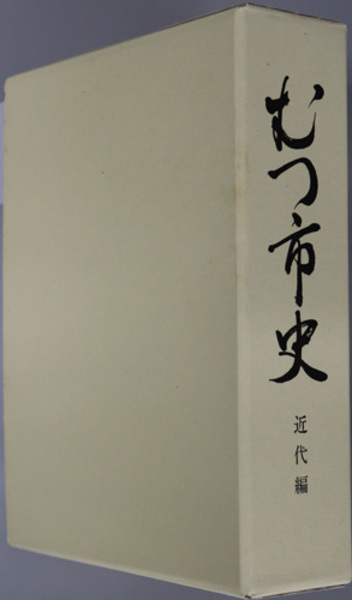 むつ市史
近代編